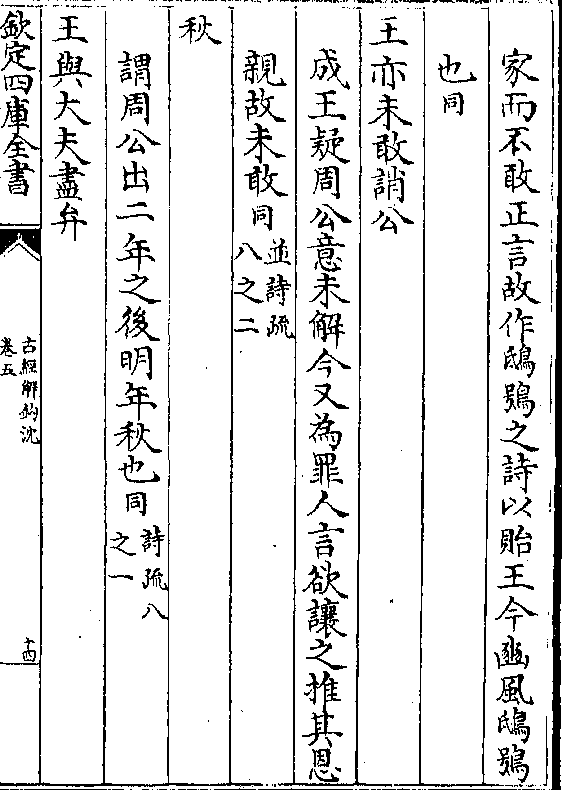 家而不敢正言故作鴟鴞之詩以貽王今豳風鴟鴞
也同
王亦未敢誚公
成王疑周公意未解今又為罪人言欲讓之推其恩
親故未敢同並詩疏八之二
秋
謂周公出二年之後明年秋也同詩疏八之一
王與大夫盡弁
欽定四庫全書
古經解鈎沈
卷五
十四